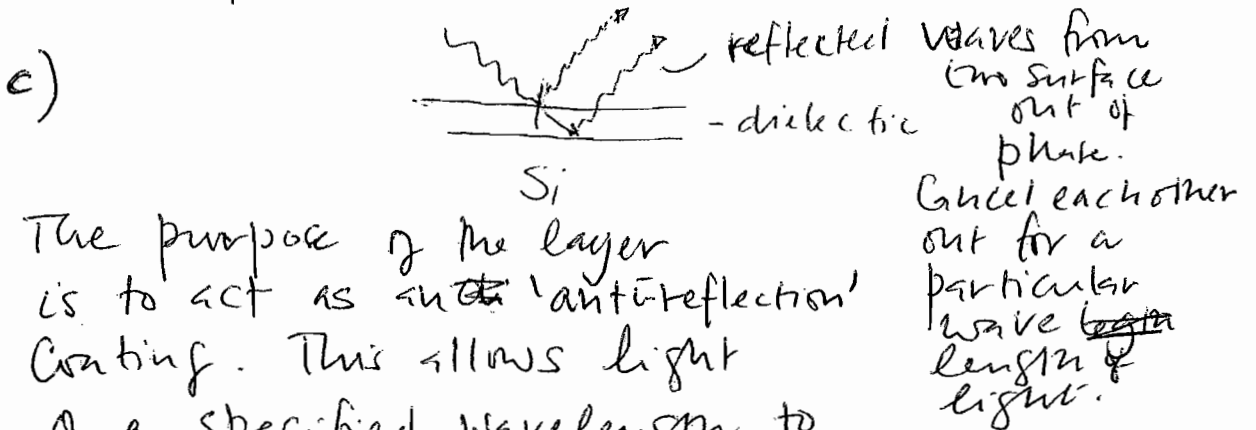 c)
reflected waves from
two surface
out of
phase.
- dielectic
Si
Cancel each other
out for a
particular
wave
length of
light.
The purpose of the layer
is to act as an 'anti-reflection'
Coating. This allows light
of a specified wavelength to